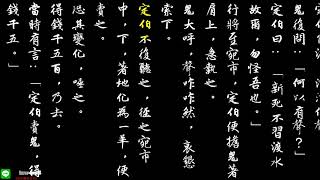 鬼復問:「何以有聲?」
定伯曰:「新死不習渡水
故爾,勿怪吾也。」
行將至宛市,定伯便擔鬼著
肩上,急執之。
鬼大呼,聲咋咋然,哀懇
索下。
定伯不復聽之,徑之宛市
中,下,著地化為一羊,便
賣之。
恐其變化,唾之。
得錢千五百,乃去。
當時有言:「定伯賣鬼,得
錢千五。」